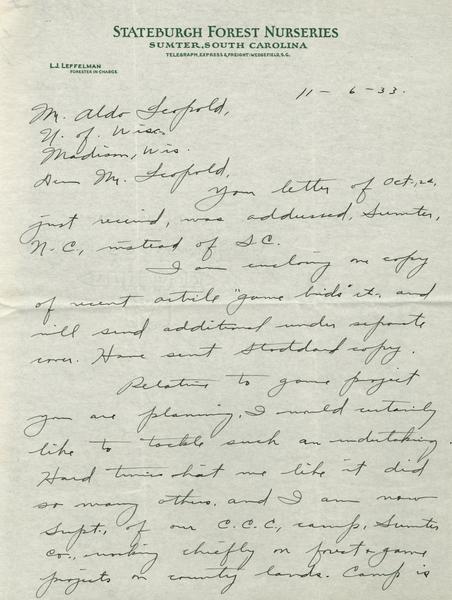 STATEBURGH FOREST NURSERIES
SUMTER, SOUTH CAROLINA
TELEGRAPH, EXPRESS & FREIGHT: WEDGEFIELD, S.C.
L.J. LEFFELMAN
FORESTER IN CHARGE
11 - 6 - 33.
Mr. Aldo Leopold,
U. of Wisc.
Madison, Wis.
Dear Mr. Leopold,
Your letter of Oct. 20,
just received, was addressed, Sumter,
N.C., instead of S.C.
I am enclosing one copy
of recent article "game birds" etc. and
will send additional under separate
cover. Have sent Stoddard copy.
Relative to game project
you are planning, I would certainly
like to tackle such an undertaking.
Hard times hat me like it did
so many others, and I am now
Supt., of our C.C.C., camp, Sumter
Co., working chiefly on forest & game
projects on county lands. Camp is